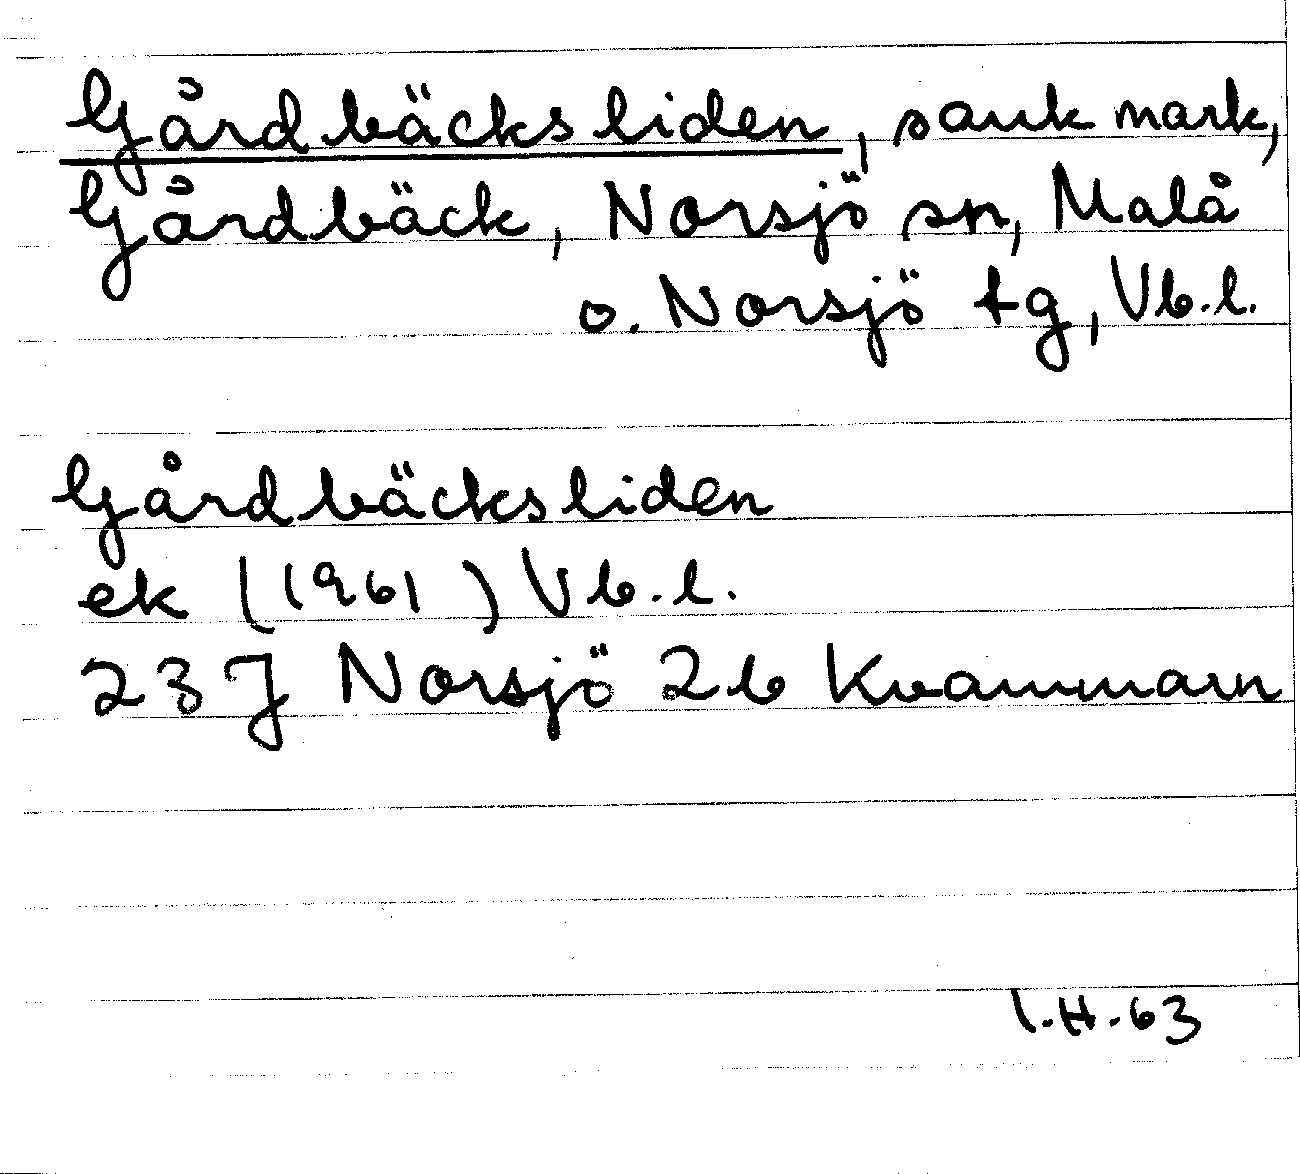 Gårdbäcksliden, sank mark,
Gårdbäck, Norsjö sn, Malå
o. Norsjö tg, Vb.l.
Gårdbäcksliden
ek (1961) Vb.l.
23 J Norsjö 2b Kvammarn
I.H.63